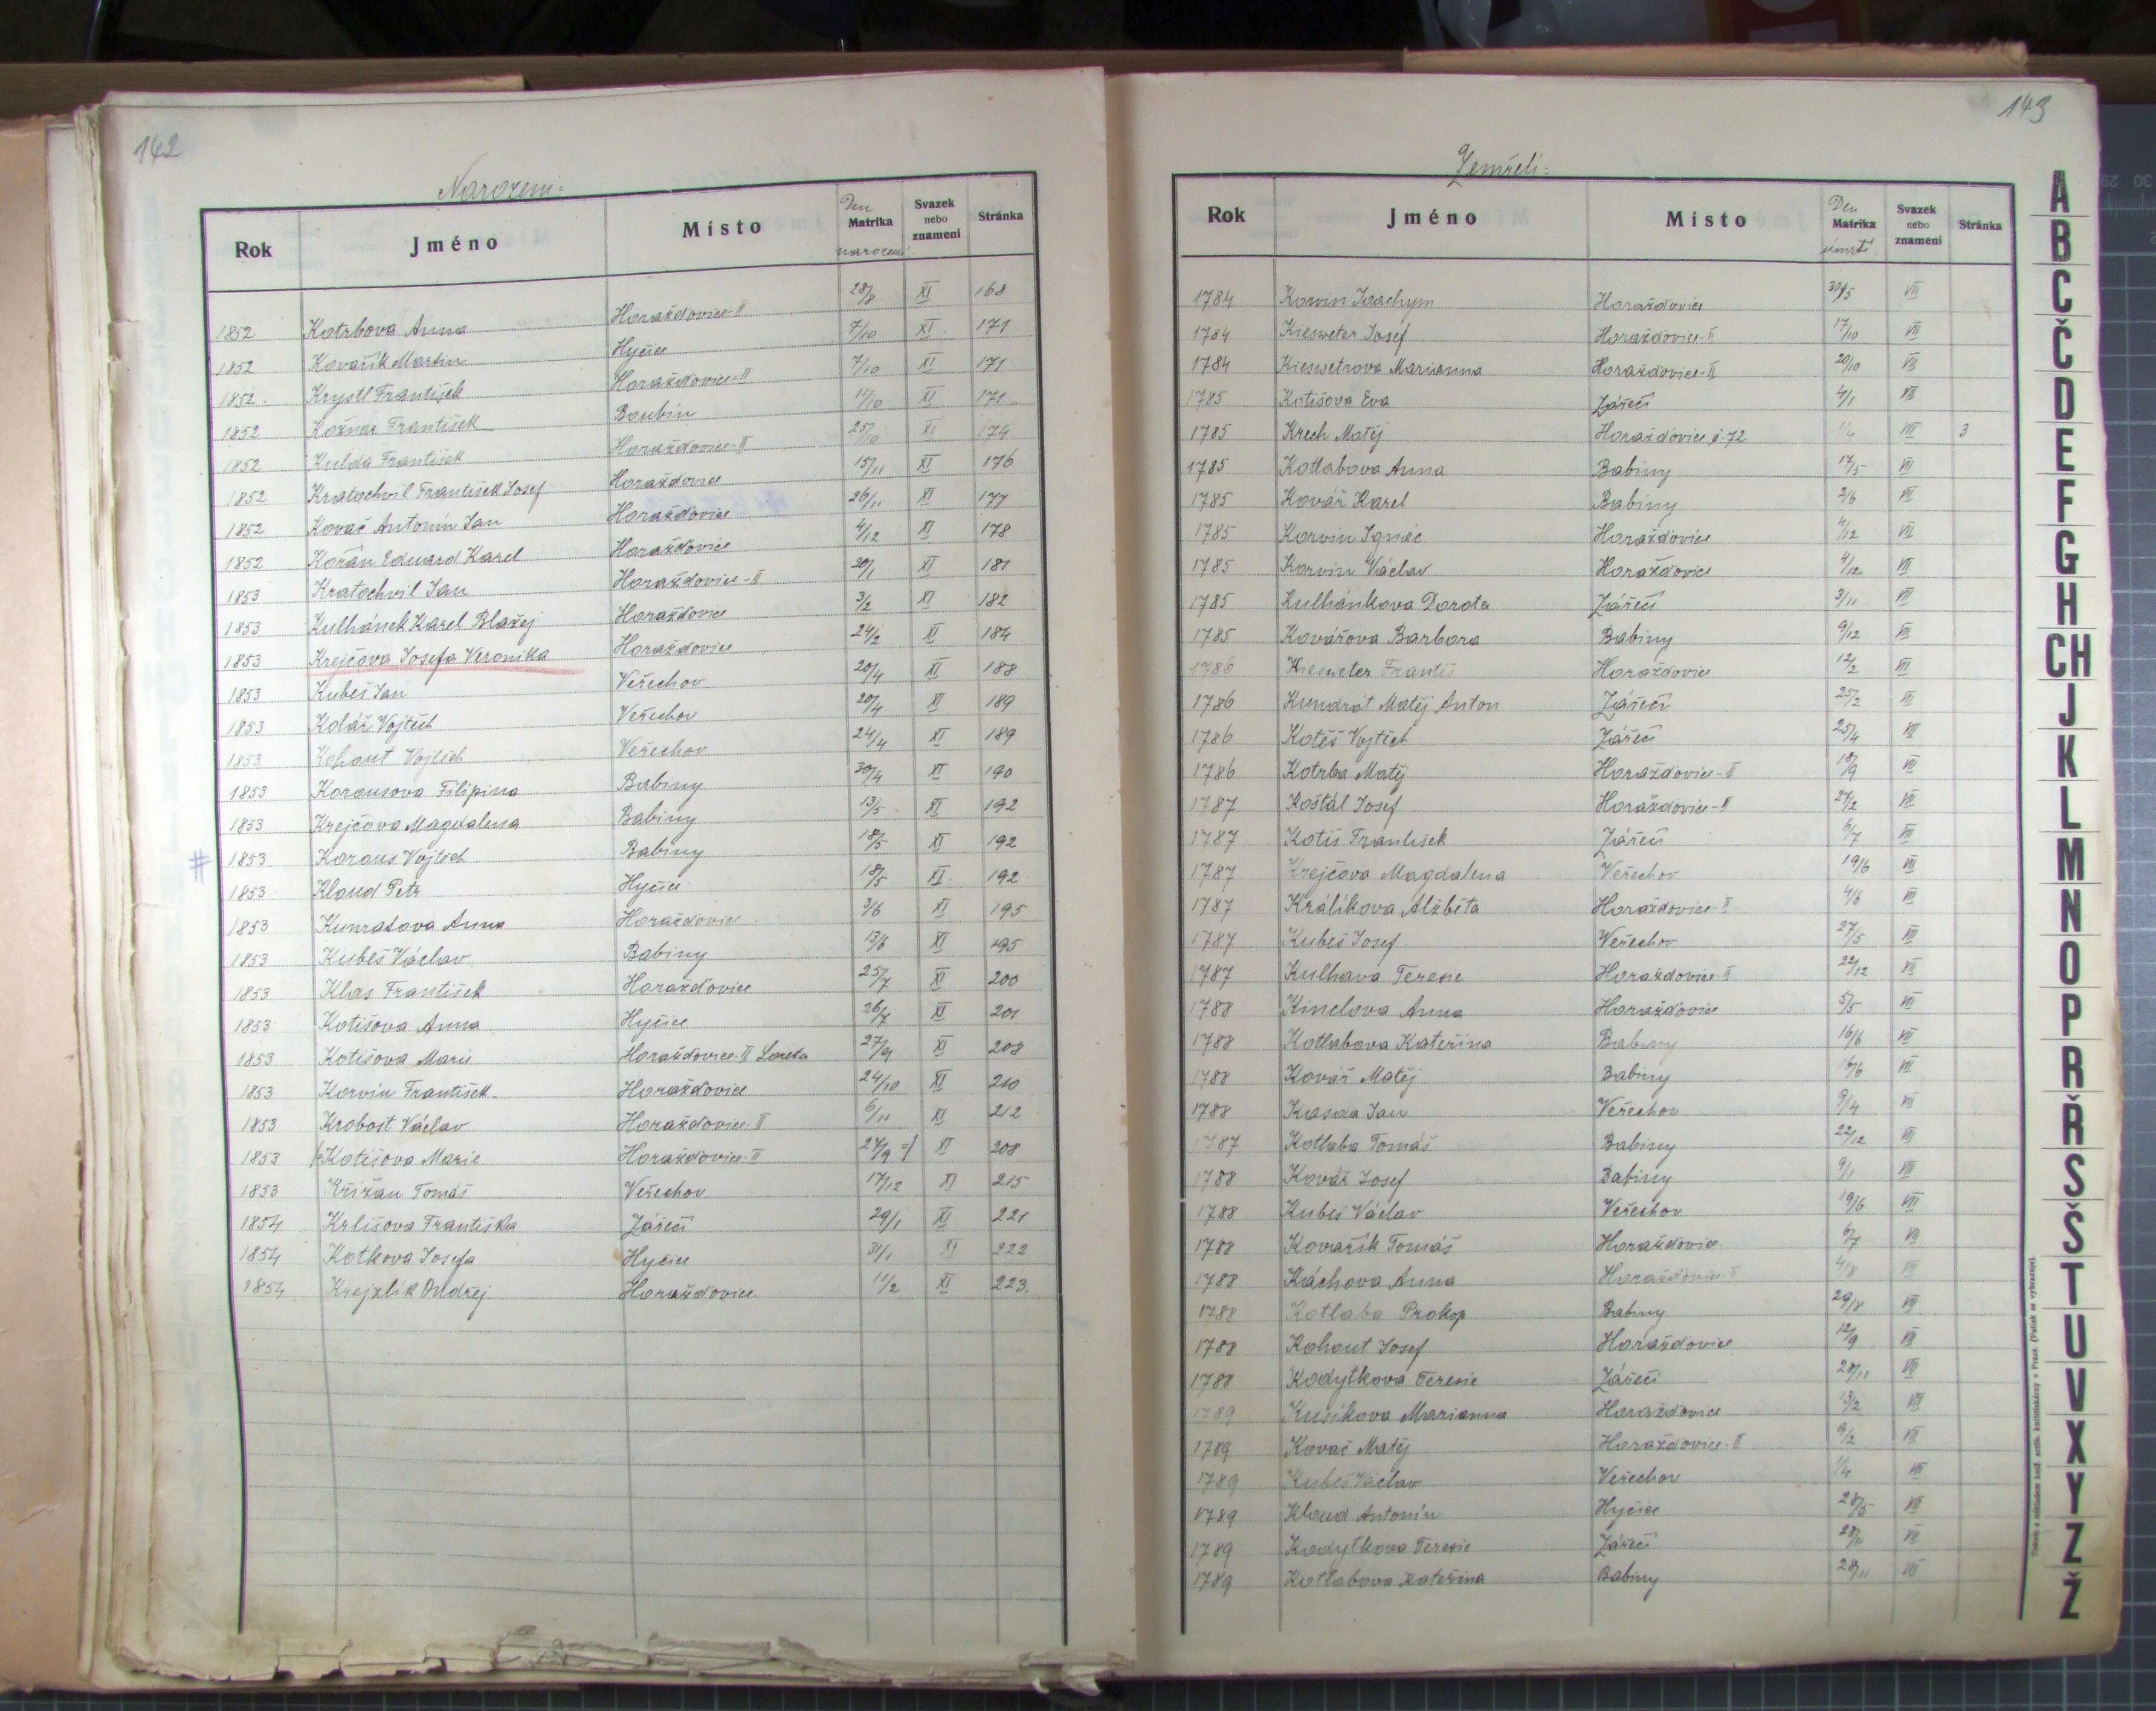 142
Narozeni:
Rok Jméno Místo Den Matrika narození Svazek nebo znamení Stránka
1852 Kotrbova Anna Horažďovice-II 28/8 XI 168
1852 Kovařík Martin Hyčice 7/10 XI 171
1852 Krystl František Horažďovice-II 7/10 XI 171
1852 František Boubín 11/10 XI 171
1852 Kulda František Horažďovice-II 25/10 XI 174
1852 Kratochvil František Josef Horažďovice 15/11 XI 176
1852 Kovač Antonín Jan Horažďovice 26/11 XI 177
1852 Kořán Eduard Karel Horažďovice 4/12 XI 178
1853 Kratochvil Jan Horažďovice-II 20/1 XI 181
1853 Kulhánek Karel Blažej Horažďovice 3/2 XI 182
1853 Krejčova Josefa Veronika Horažďovice 24/2 XI 184
1853 Kubeš Jan Veřechov 20/4 XI 188
1853 Kolář Vojtěch Veřechov 20/4 XI 189
1853 Kohout Vojtěch Veřechov 24/4 XI 189
1853 Korousova Filipina Babiny 30/4 XI 190
1853 Krejčova Magdalena Babiny 13/5 XI 192
# 1853 Korous Vojtěch Babiny 18/5 XI 192
1853 Kloud Petr Hyčice 18/5 XI 192
1853 Kunratova Anna Horažďovice 3/6 XI 195
1853 Kubeš Václav Babiny 13/6 XI 195
1853 Klas František Horažďovice 25/7 XI 200
1853 Kotišova Anna Hyčice 26/7 XI 201
1853 Kotišova Marie Horažďovice-II Loreta 27/9 XI 208
1853 Korvin František Horažďovice 24/10 XI 210
1853 Krobost Václav Horažďovice-II 6/11 XI 212
1853 Kotišova Marie Horažďovice-II 27/9 =/ XI 208
1853 Křižan Tomáš Veřechov 17/12 XI 215
1854 Krlišova Františka Zářečí 29/1 XI 221
1854 Kotkova Josefa Hyčice 31/1 XI 222
1854 Krejzlík Ondřej Horažďovice 11/2 XI 223.
143
Zemřeli:
Rok Jméno Místo Den Matrika úmrtí Svazek nebo znamení Stránka
1784 Korvin Joachym Horažďovice 30/5 VII
1784 Kiesweter Josef Horažďovice-II 17/10 VII
1784 Kieswetrova Marianna Horažďovice-II 20/10 VII
1785 Kotišova Eva Zářečí 4/1 VII
1785 Krech Matěj Horažďovice č.72 1/4 VII 3
1785 Kotlabova Anna Babiny 17/5 VII
1785 Kovář Karel Babiny 2/6 VII
1785 Korvin Ignác Horažďovice 4/12 VII
1785 Korvin Václav Horažďovice 4/12 VII
1785 Kulhánkova Dorota Zářečí 3/11 VII
1785 Kovářova Barbora Babiny 9/12 VII
1786 Kiesweter Františ Horažďovice 12/2 VII
1786 Kundrát Matěj Anton Zářečí 25/2 VII
1786 Koteš Vojtěch Zářečí 25/4 VII
1786 Kotrba Matěj Horažďovice-II 18/9 VII
1787 Koštál Josef Horažďovice-II 27/2 VII
1787 Kotiš František Zářečí 6/7 VII
1787 Krejčova Magdalena Veřechov 19/6 VII
1787 Králíkova Alžběta Horažďovice-II 4/6 VII
1787 Kubeš Josef Veřechov 27/5 VII
1787 Kulhava Teresie Horažďovice-II 22/12 VII
1788 Kinclova Anna Horažďovice 5/5 VII
1788 Kotlabova Kateřina Babiny 16/6 VII
1788 Kovář Matěj Babiny 16/6 VII
1788 Kasda Jan Veřechov 9/4 VII
1787 Kotlaba Tomáš Babiny 22/12 VII
1788 Kovář Josef Babiny 9/1 VII
1788 Kubeš Václav Veřechov 19/6 VII
1788 Kovařík Tomáš Horažďovice 6/7 VII
1788 Káchova Anna Horažďovice-II 4/8 VII
1788 Kotlaba Prokop Babiny 29/8 VII
1788 Kohout Josef Horažďovice 12/9 VII
1788 Kodytkova Teresie Zářečí 28/11 VII
1789 Kusikova Marianna Horažďovice 13/2 VII
1789 Kovač Matěj Horažďovice-II 9/2 VII
1789 Kubeš Václav Veřechov 1/4 VII
1789 Kloud Antonín Hyčice 28/5 VII
1789 Kodytkova Teresie Zářečí 28/11 VII
1789 Kotlabova Kateřina Babiny 28/11 VII
A
B
C
Č
D
E
F
G
H
CH
J
K
L
M
N
O
P
R
Ř
S
Š
T
U
V
X
Y
Z
Ž